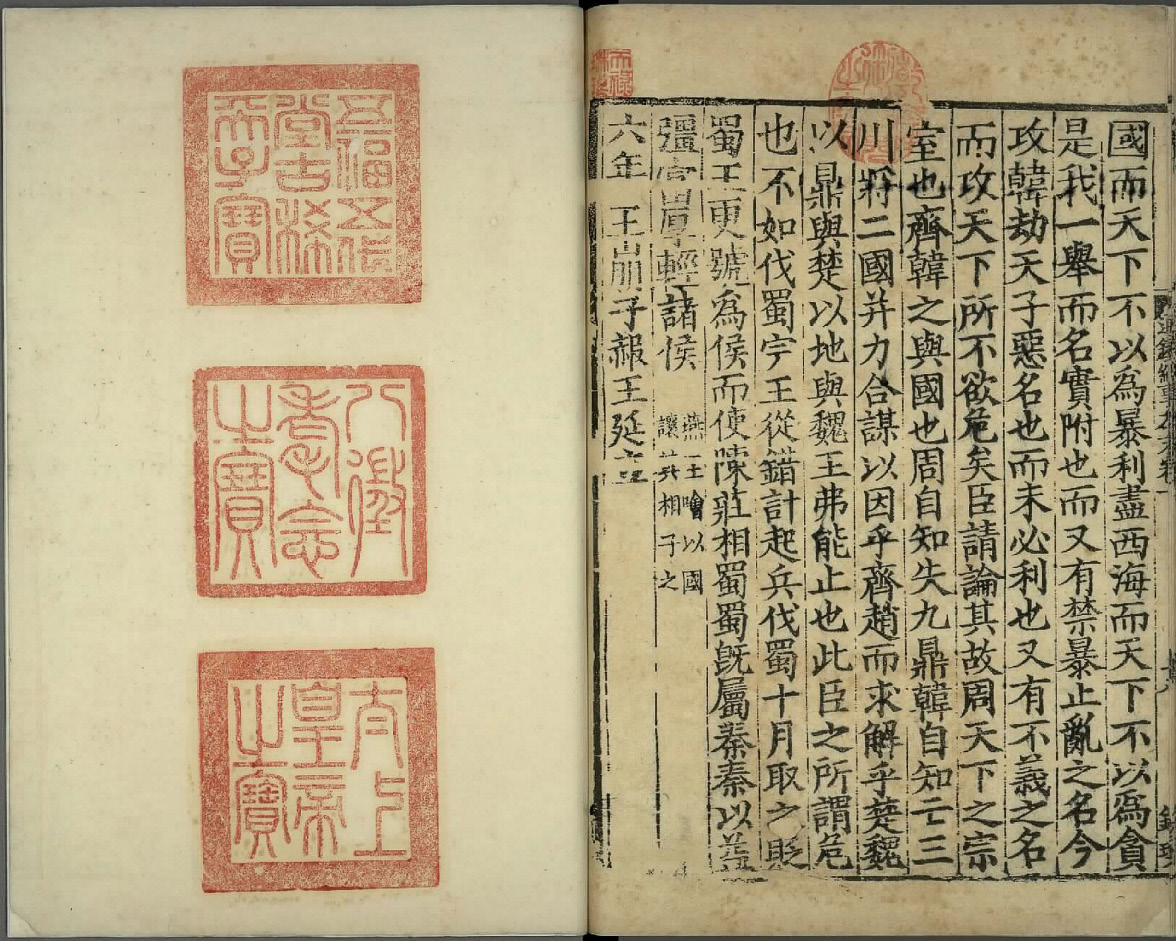 國而天下不以為暴利盡西海而天下不以為貪
是我一舉而名實附也而又有禁暴止亂之名今
攻韓劫天子惡名也而未必利也又有不義之名
而攻天下所不欲危矣臣請論其故周天下之宗
室也齊韓之與國也周自知失九鼎韓自知亡三
川將二國并力合謀以因乎齊趙而求解乎楚魏
以鼎與楚以地與魏王弗能止也此臣之所謂危
也不如伐蜀完王從錯計起兵伐蜀十月取之貶
蜀王更號為侯而使陳莊相蜀蜀既屬秦秦以益
彊富厚輕諸侯
燕王噲以國
讓其相子之
六年王崩子赧王延立
五福五代
堂古稀
天子寶
八徵
耄念
之寶
太上
皇帝
之寶